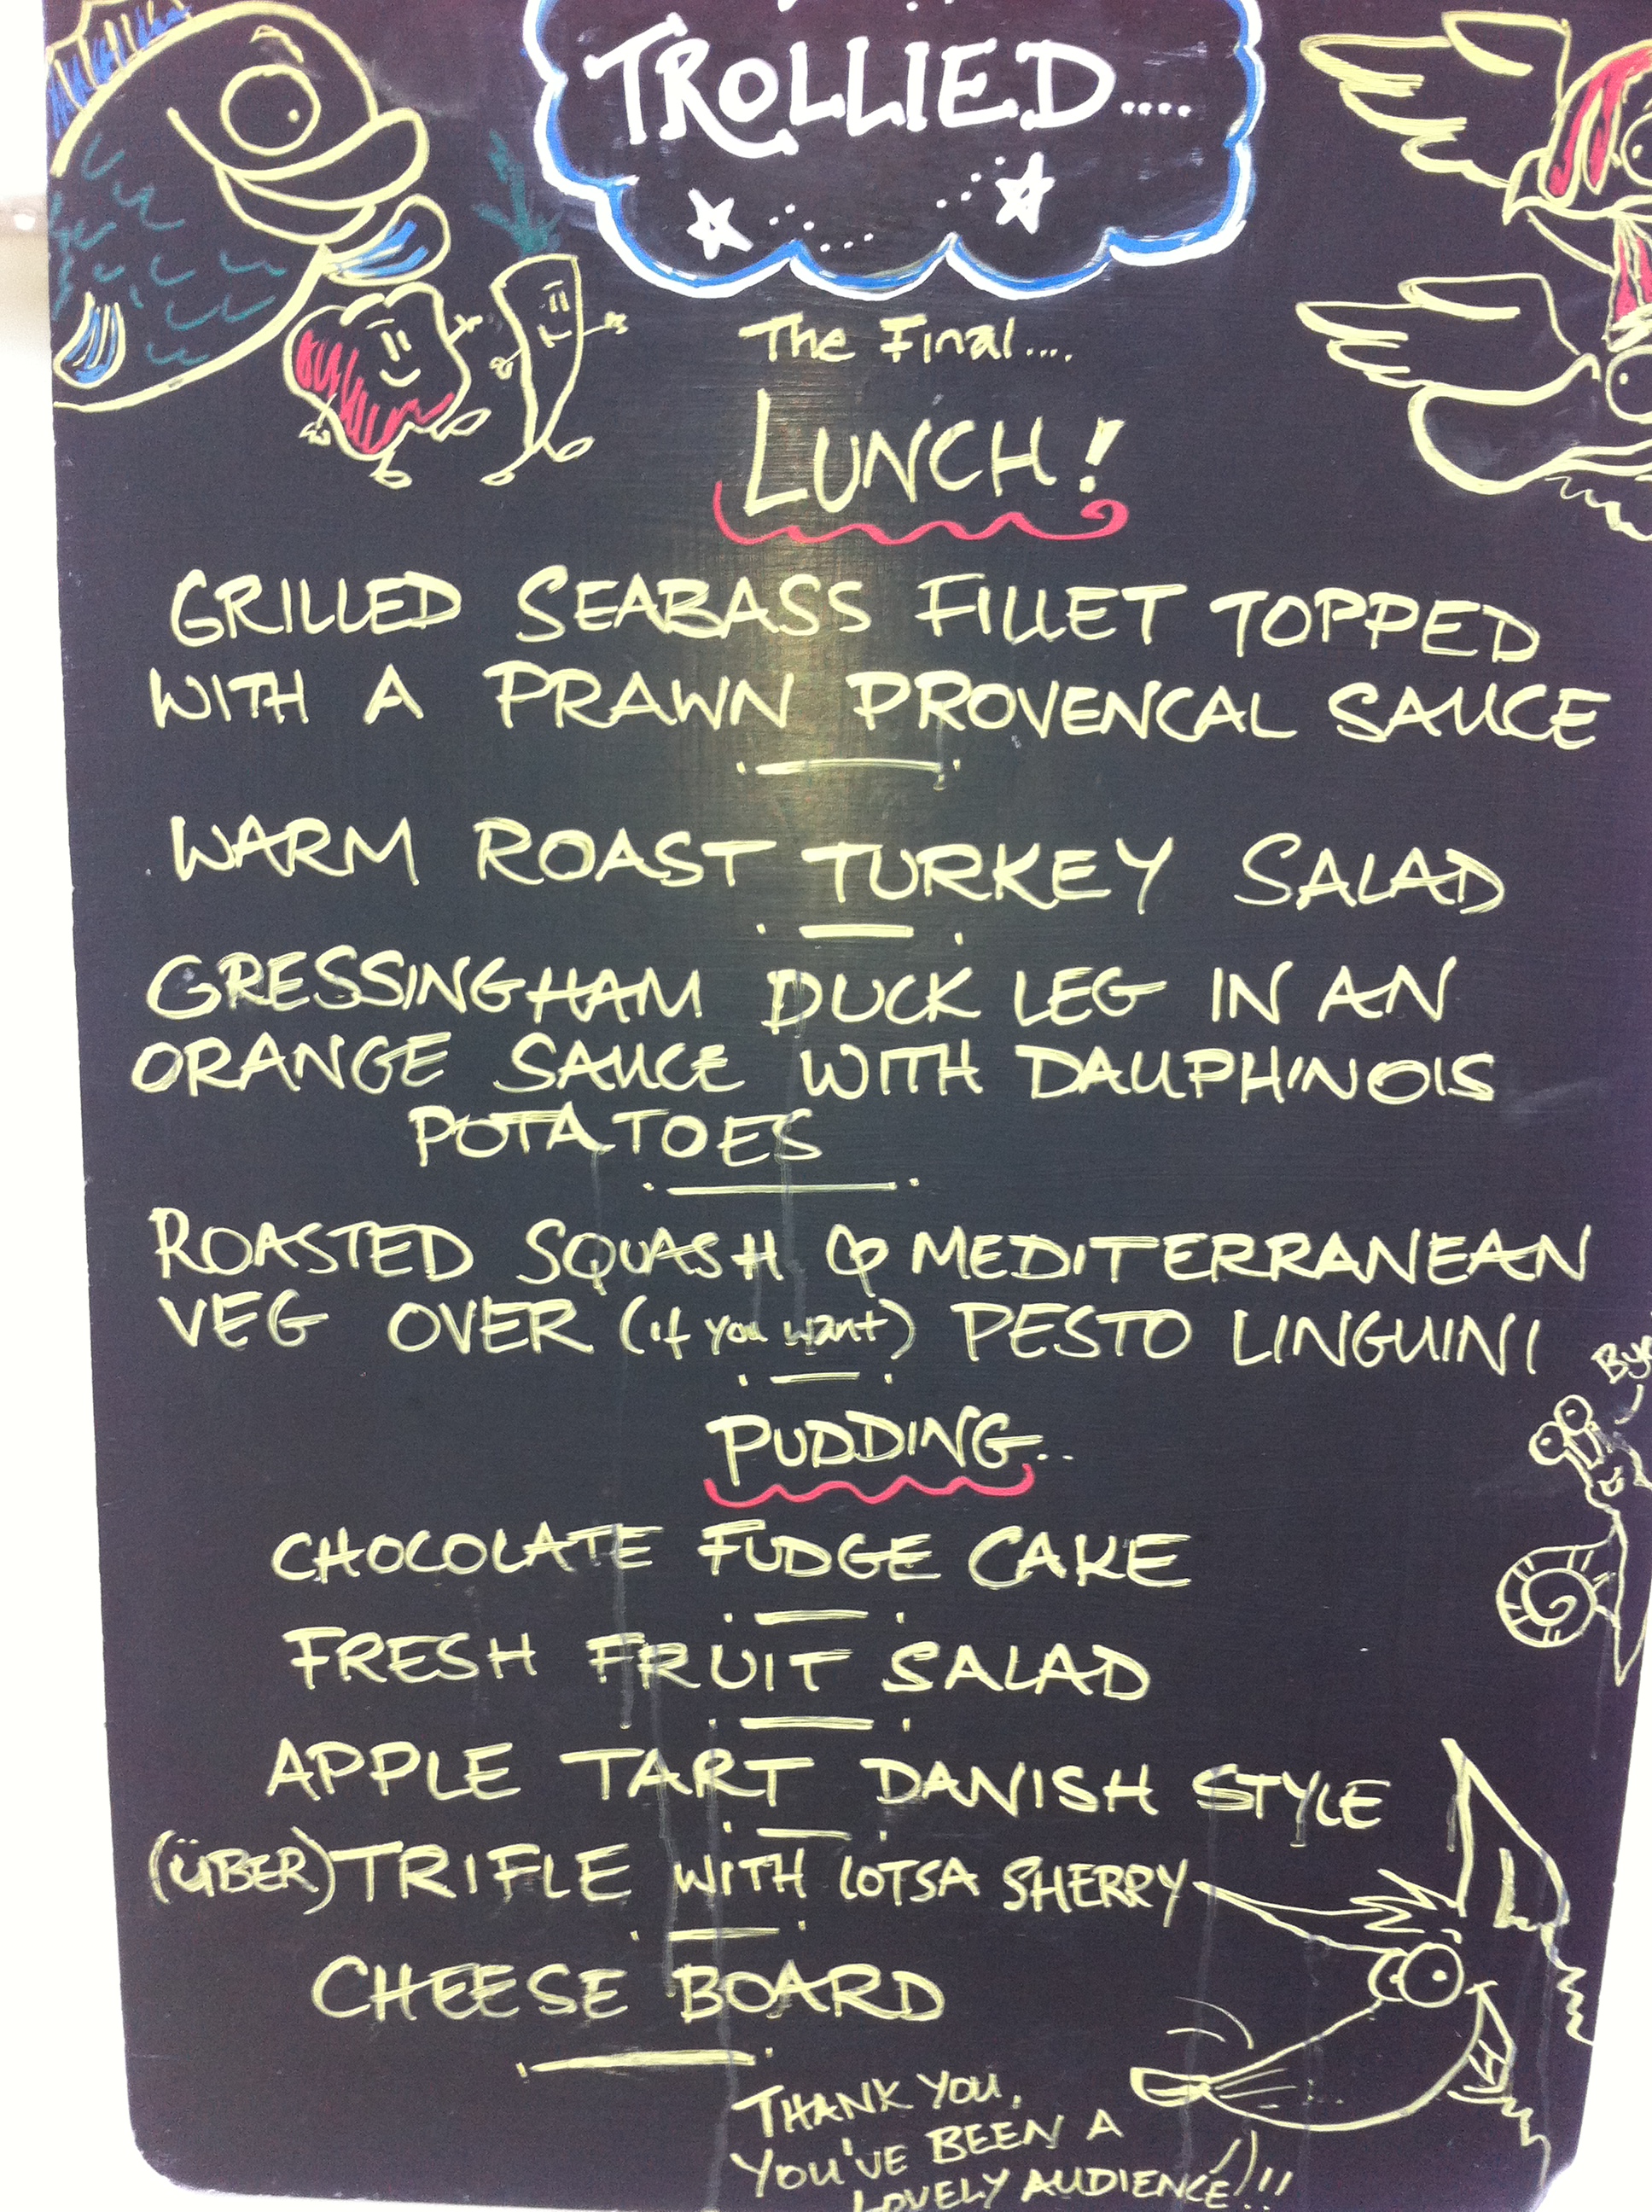 TROLLIED....
The Final....
LUNCH!
GRILLED SEABASS FILLET TOPPED
WITH A PRAWN PROVENCAL SAUCE
WARM ROAST TURKEY SALAD
GRESSINGHAM DUCK LEG IN AN
ORANGE SAUCE WITH DAUPHINOIS
POTATOES
ROASTED SQUASH & MEDITERRANEAN
VEG OVER (if you want) PESTO LINGUINI
PUDDING..
CHOCOLATE FUDGE CAKE
FRESH FRUIT SALAD
APPLE TART DANISH STYLE
(ÜBER) TRIFLE WITH LOTSA SHERRY
CHEESE BOARD
THANK YOU,
YOU'VE BEEN A
LOVELY AUDIENCE!!!